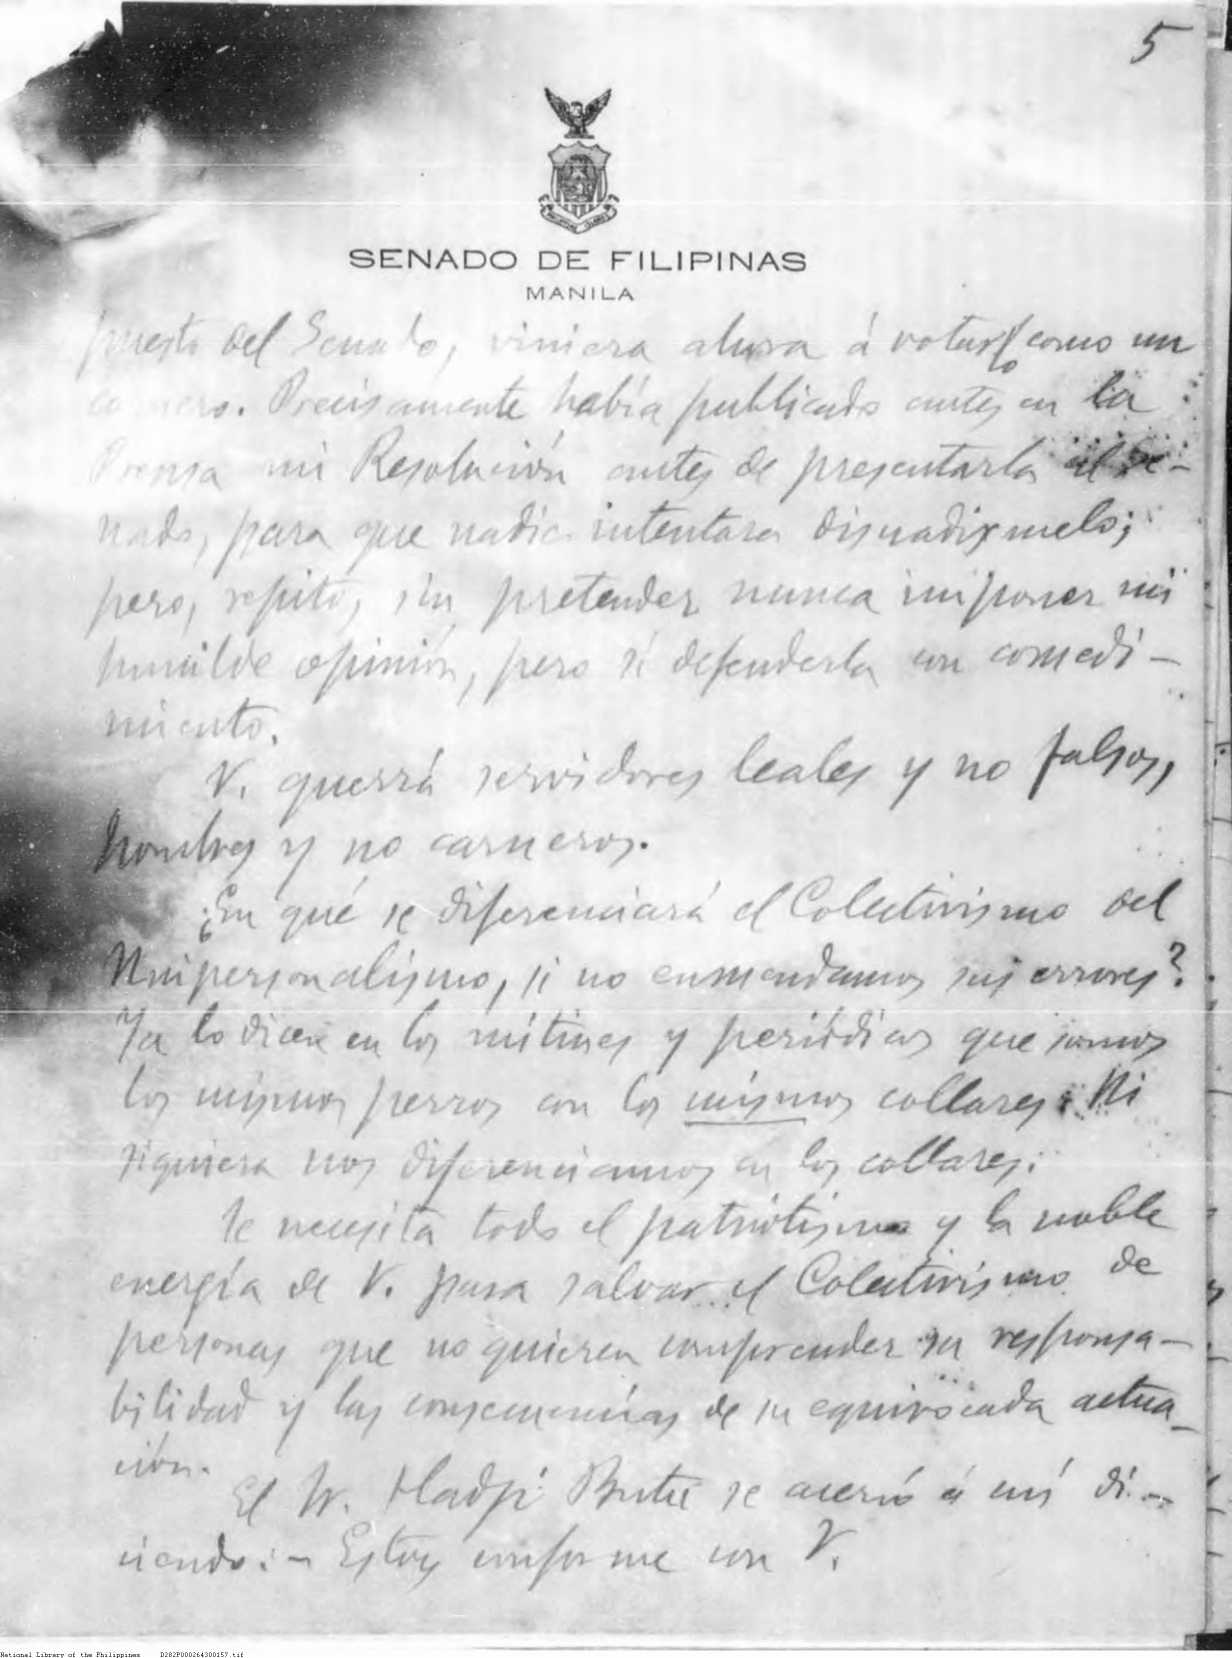 5
SENADO DE FILIPINAS
MANILA
puesto del Senado, viniera ahora á votar como un
carnero. Precisamente había publicado antes en la
Prensa mi Resolución antes de presentarla al Se-
nado, para que nadie intentara disuadírmelo;
pero, repito, sin pretender nunca imponer mi
humilde opinión, pero sí defenderla con comedi-
miento.
V. querrá servidores leales y no falsos,
hombres y no carneros.
¿En qué se diferenciará el Colectivismo del
Unipersonalismo, si no enmendamos sus errores?
Ya lo dicen en los mítines y periódicos que somos
los mismos perros con los mismos collares. Ni
siquiera nos diferenciamos en los collares.
Se necesita todo el patriotismo y la noble
energía de V. para salvar el Colectivismo de
personas que no quieren comprender su responsa-
bilidad y las consecuencias de su equivocada actua-
ción.
El Sr. Hadji Butu se acercó á mí di-
ciendo:- Estoy conforme con V.
National Library of the Philippines D282P000264300157.tif